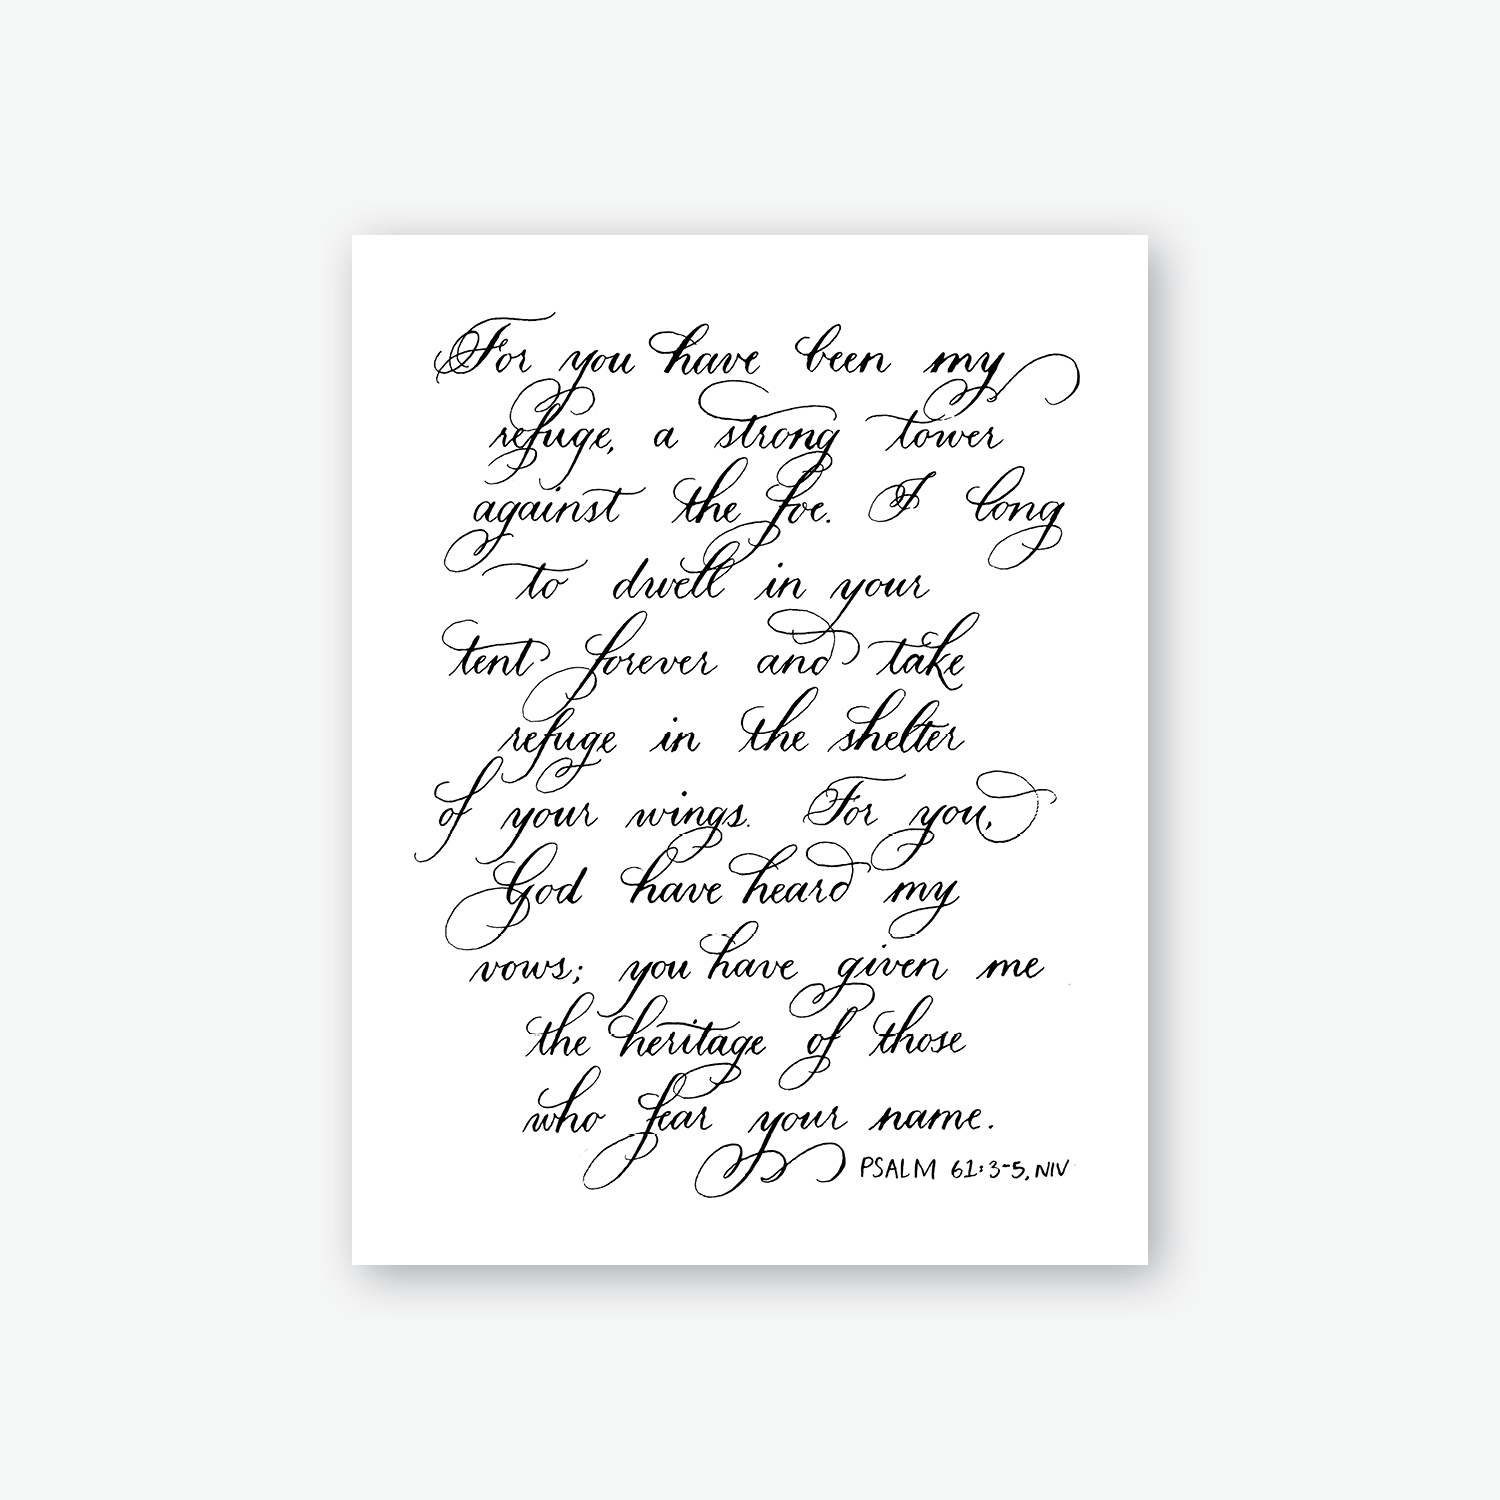 For you have been my
refuge, a strong tower
against the foe. I long
to dwell in your
tent forever and take
refuge in the shelter
of your wings. For you,
God have heard my
vows; you have given me
the heritage of those
who fear your name.
PSALM 61:3-5, NIV